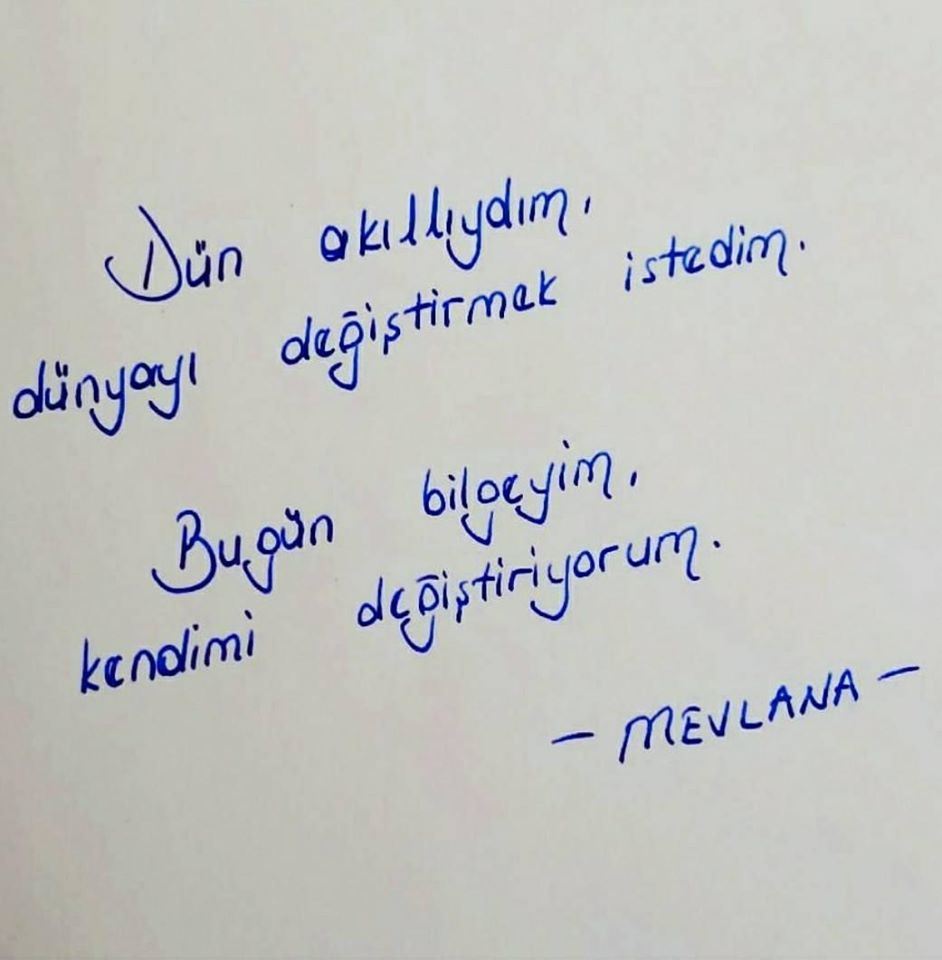 Dün akıllıydım,
dünyayı değiştirmek istedim.
Bugün bilgeyim,
kendimi değiştiriyorum.
- MEVLANA -